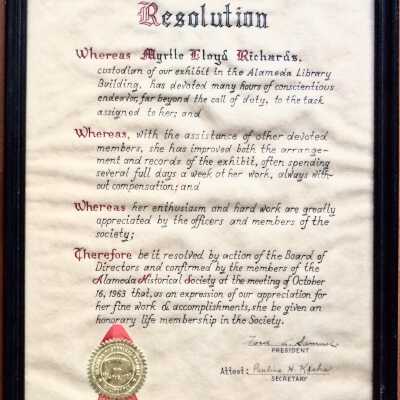 Resolution
Whereas Myrtle Lloyd Richards,
custodian of our exhibit in the Alameda Library
Building, has devoted many hours of conscientious
endeavor, far beyond the call of duty, to the task
assigned to her; and
Whereas, with the assistance of other devoted
members, she has improved both the arrange-
ment and records of the exhibit, often spending
several full days a week at her work, always with-
out compensation; and
Whereas her enthusiasm and hard work are greatly
appreciated by the officers and members of the
society;
Therefore be it resolved by action of the Board of
Directors and confirmed by the members of the
Alameda Historical Society at the meeting of October
16, 1963 that, as an expression of our appreciation for
her fine work & accomplishments, she be given an
honorary life membership in the Society.
PRESIDENT
Attest: Pauline H.
SECRETARY